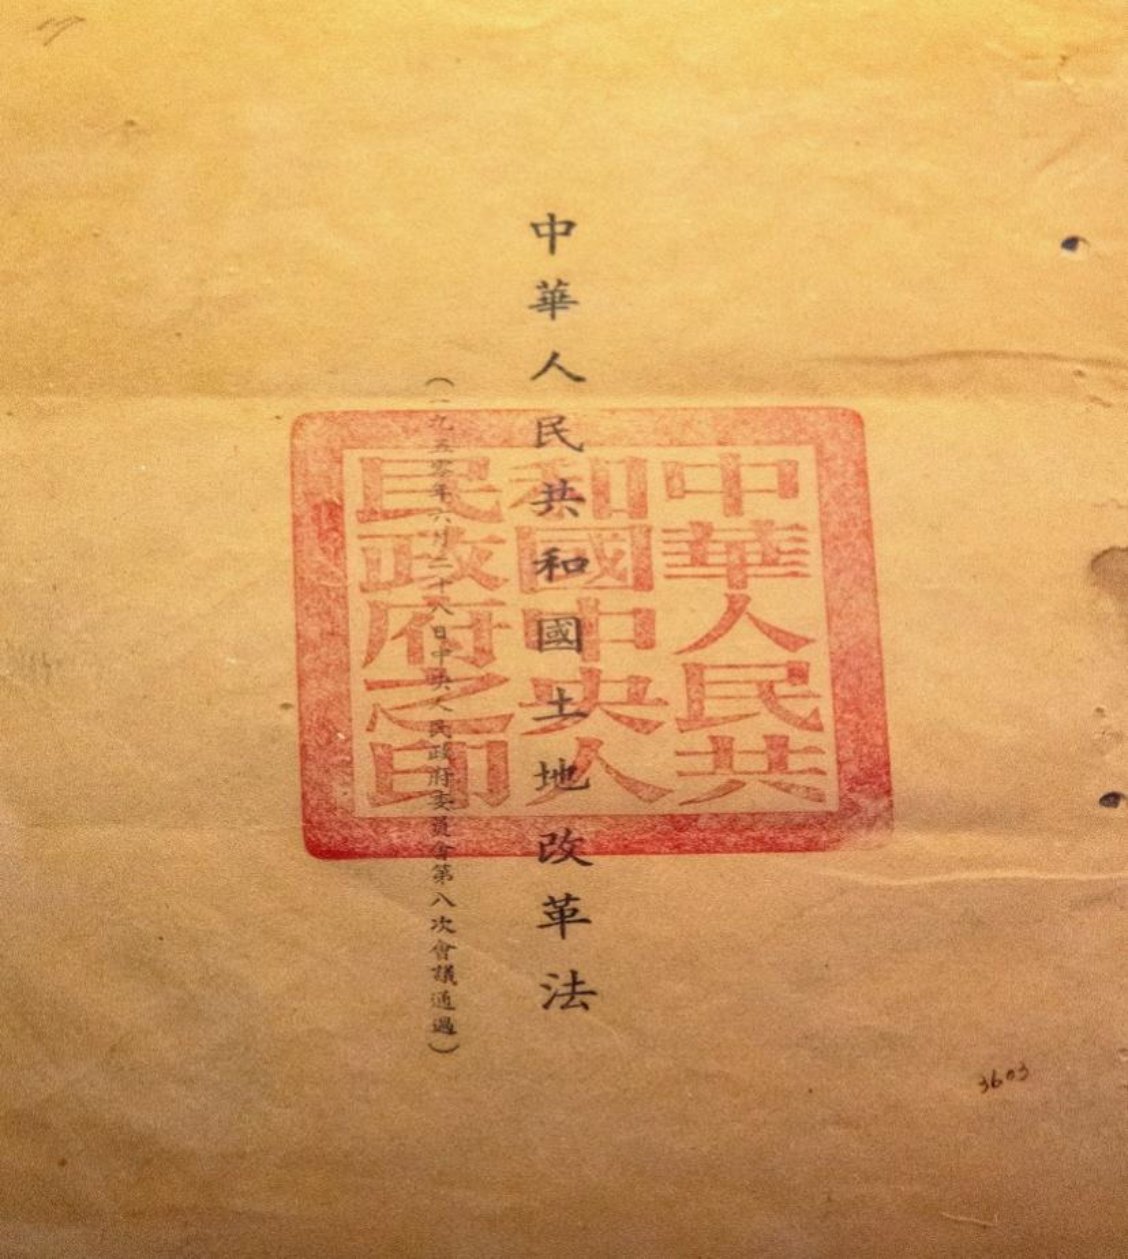 中華人民共和國土地改革法
（一九五零年六月二十八日中央人民政府委員會第八次會議通過）
中華人民共
和國中央人
民政府之印
3603